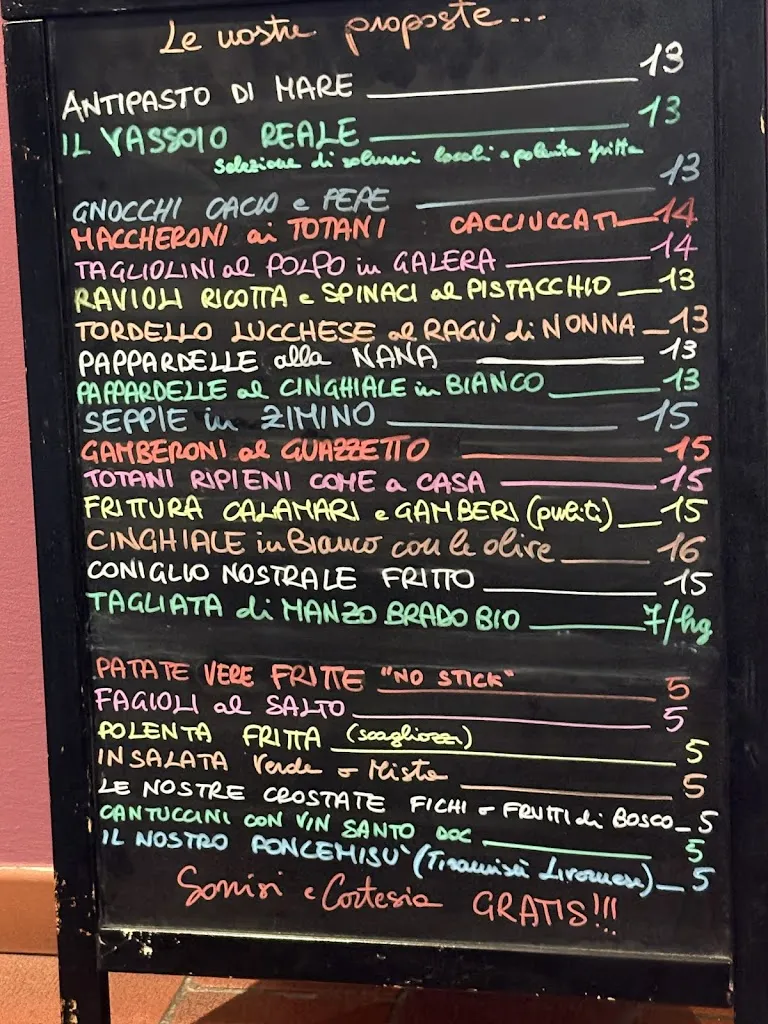 Le nostre proposte...
ANTIPASTO DI MARE 13
IL VASSOIO REALE 13
selezione di salumi locali e polenta fritta
GNOCCHI CACIO e PEPE 13
MACCHERONI ai TOTANI CACCIUCCATI 14
TAGLIOLINI al POLPO in GALERA 14
RAVIOLI RICOTTA e SPINACI al PISTACCHIO 13
TORDELLO LUCCHESE al RAGÙ di NONNA 13
PAPPARDELLE alla NANA 13
PAPPARDELLE al CINGHIALE in BIANCO 13
SEPPIE in ZIMINO 15
GAMBERONI al GUAZZETTO 15
TOTANI RIPIENI COME a CASA 15
FRITTURA CALAMARI e GAMBERI (puliti) 15
CINGHIALE in Bianco con le olive 16
CONIGLIO NOSTRALE FRITTO 15
TAGLIATA di MANZO BRADO BIO 7/hg
PATATE VERE FRITTE "NO STICK" 5
FAGIOLI al SALTO 5
POLENTA FRITTA (scagliozzi) 5
INSALATA Verde o Mista 5
LE NOSTRE CROSTATE FICHI o FRUTTI di BOSCO 5
CANTUCCINI CON VIN SANTO DOC 5
IL NOSTRO PONCEMISÙ (Tiramisù Livornese) 5
Sorrisi e Cortesia GRATIS!!!